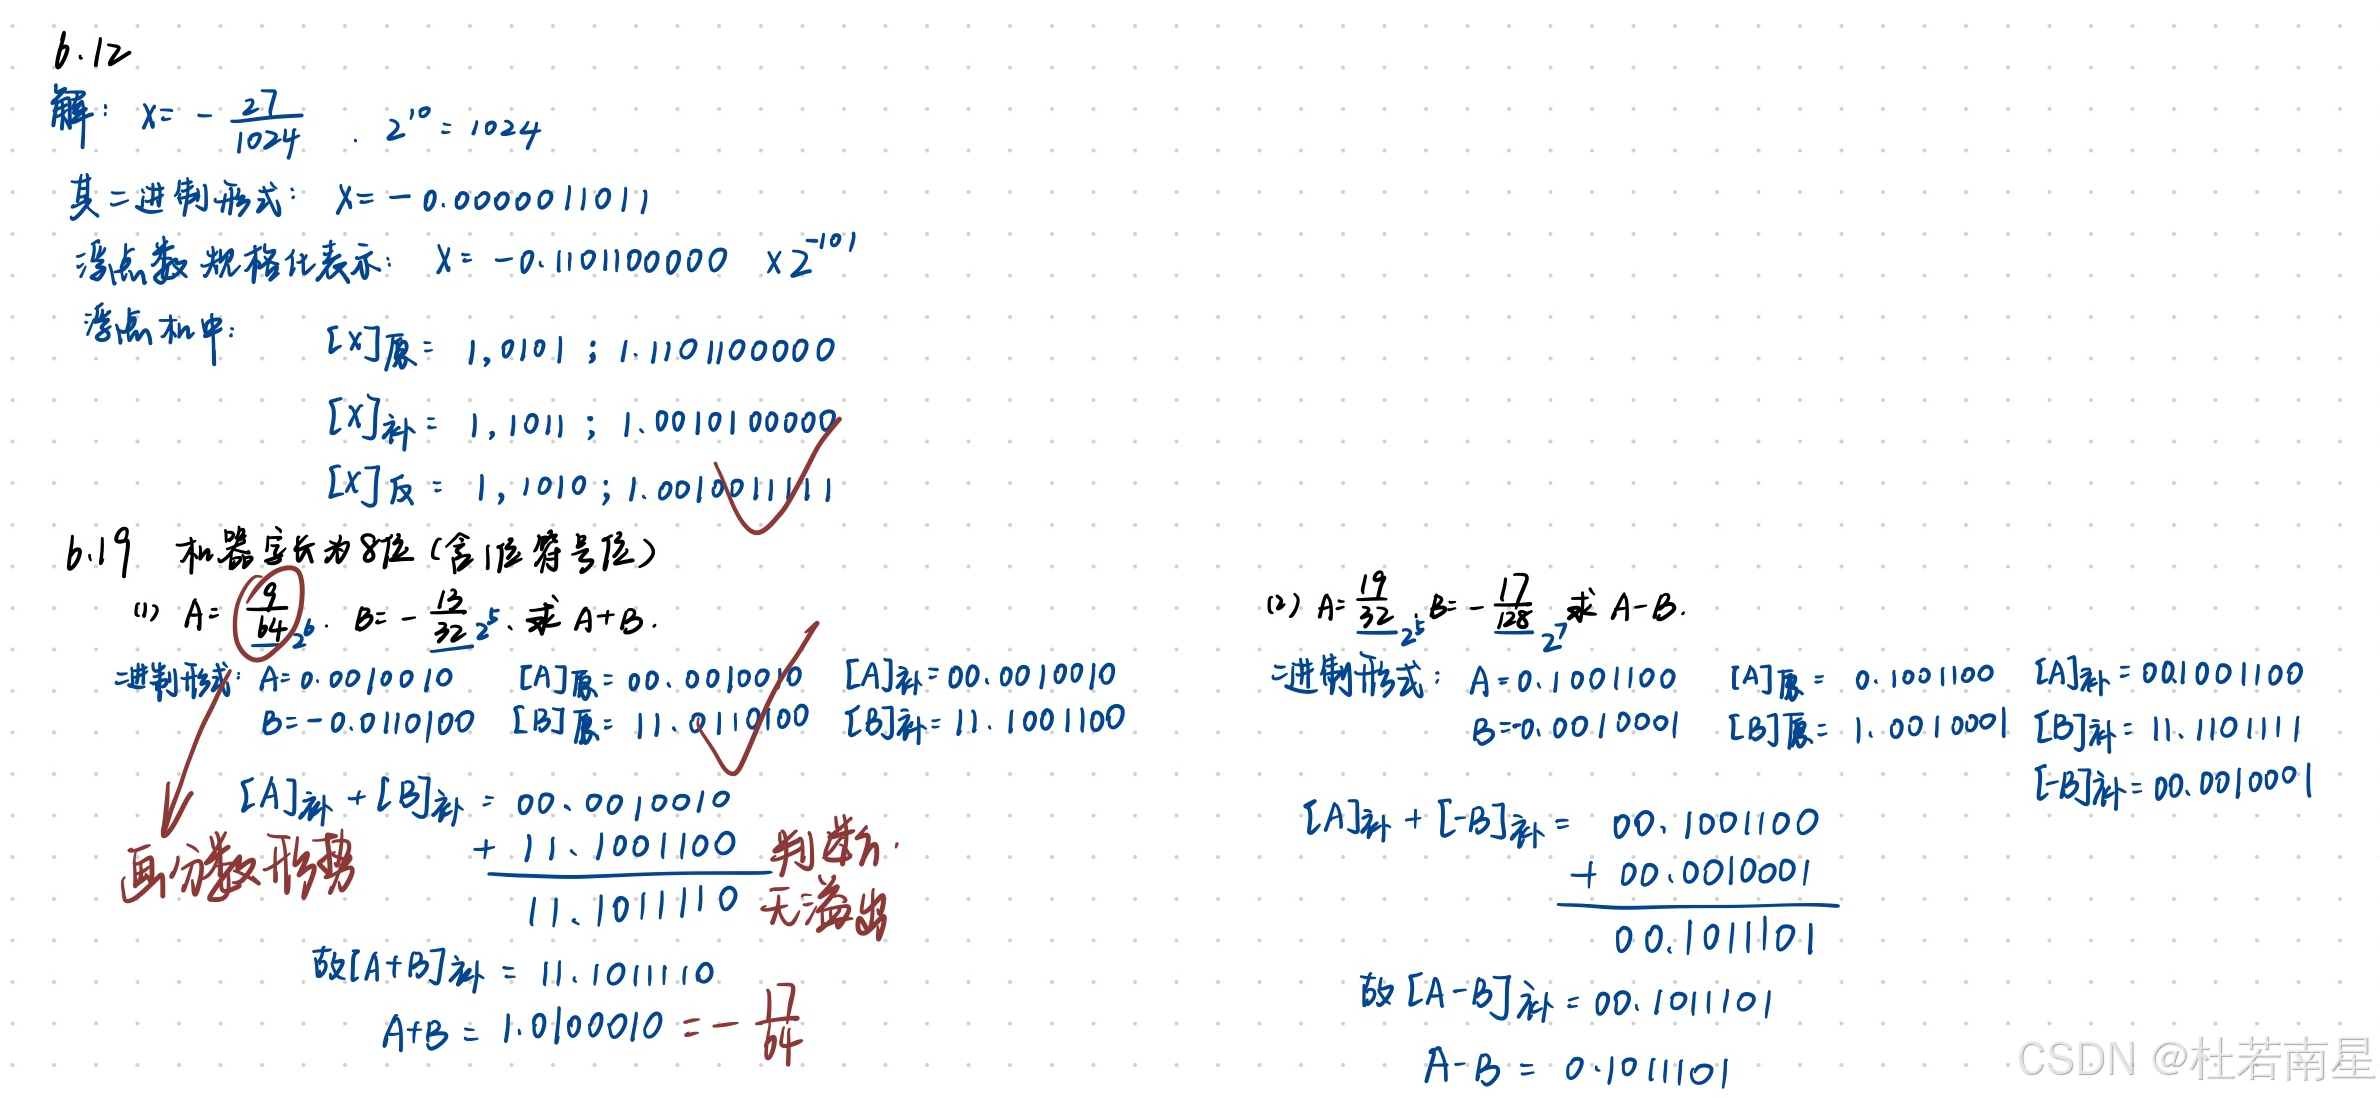 6.12
解: X= - 27/1024 . 2^10 = 1024
其二进制形式: X= - 0.0000011011
浮点数规格化表示: X= -0.1101100000 ×2^-101
浮点机中: [X]原= 1,0101 ; 1.1101100000
[X]补= 1,1011 ; 1.0010100000
[X]反= 1,1010 ; 1.0010011111
6.19 机器字长为8位(含1位符号位)
(1) A= 9/64 2^6 . B= - 13/32 2^5 、求 A+B.
二进制形式: A=0.0010010 [A]原=00.0010010 [A]补=00.0010010
B=-0.0110100 [B]原=11.0110100 [B]补=11.1001100
[A]补+[B]补= 00.0010010
+ 11.1001100
11.1011110
画分数形势
判断.
无溢出
故[A+B]补= 11.1011110
A+B = 1.0100010 = - 17/64
(2) A= 19/32 2^5 . B= - 17/128 2^7 求 A-B.
二进制形式: A=0.1001100 [A]原= 0.1001100 [A]补=00.1001100
B=-0.0010001 [B]原= 1.0010001 [B]补= 11.1101111
[-B]补=00.0010001
[A]补+[-B]补= 00.1001100
+ 00.0010001
00.1011101
故[A-B]补=00.1011101
A-B = 0.1011101
CSDN @杜若南星